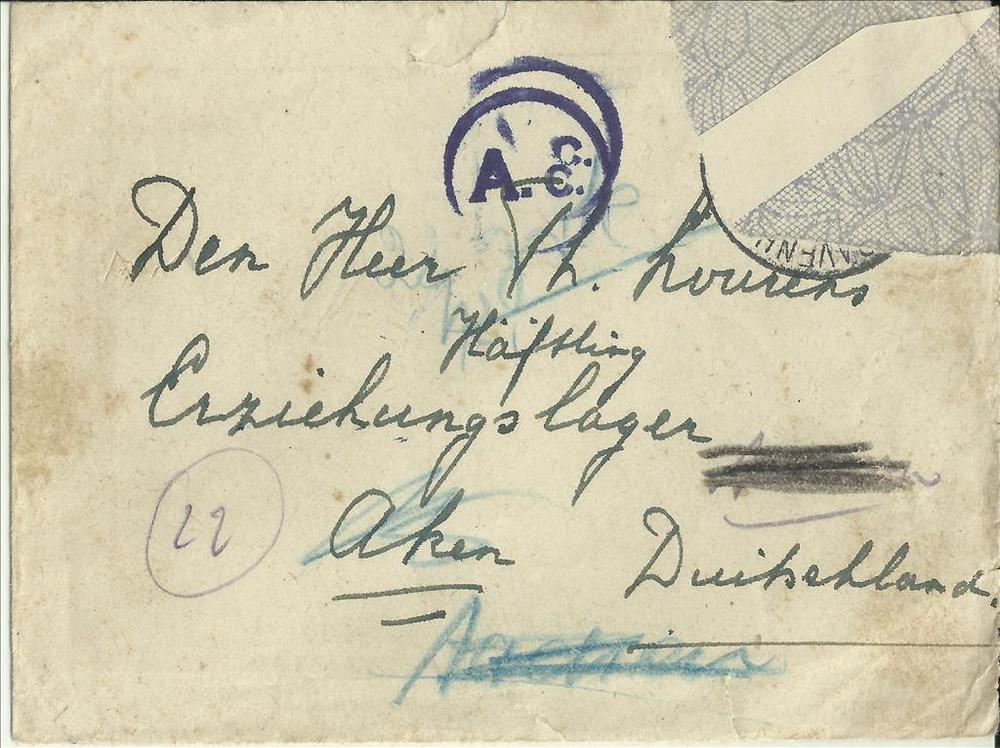 A. C. C.
Den Heer Th. Lourens
Häftling
Erziehungslager
22
Aken Duitschland.